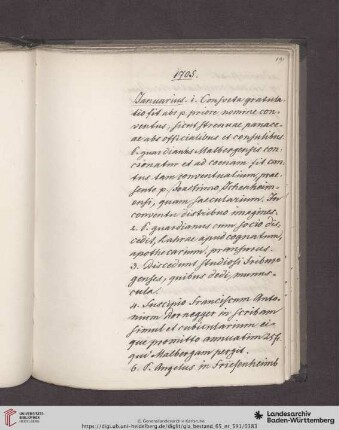 191
1705.
Januarius. 1. Consueta gratula-
tio fit abs p. priore nomine con-
ventus, sicut strenuae panace-
ae abs officialibus et consulibus.
P. guardianus Malbergenses con-
cionatur et ad coenam fit can-
tus tam conventualium, prae-
sente p. Joachimo
ensi, quam saecularium. In
conventu distribuo imagines.
2. P. guardianus cum socio dis-
cedit, Lahrae apud cognatum,
apothecarium, pransurus.
3. Discedunt studiosi Friburg-
genses, quibus dedi munus-
cula.
4. Suscipio Franciscum Anto-
nium Kornegger in scribam
simul et cubicularium ei-
que promitto annuatim 25 fl.
qui Malbergam pergit.
6. P. Angelus in Friesenheimb
UNIVERSITÄTS-
BIBLIOTHEK
HEIDELBERG
© Generallandesarchiv Karlsruhe
https://digi.ub.uni-heidelberg.de/diglit/gla_bestand_65_nr_591/0183
Landesarchiv
Baden-Württemberg